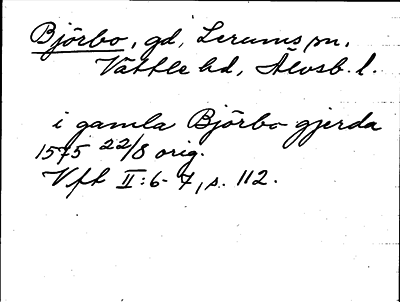 Björbo, gd, Lerums sn,
Vättle hd, Älvsb. l.
i gamla Björbo gjerda
1575 22/8 orig.
Vft II:6-7, s. 112.